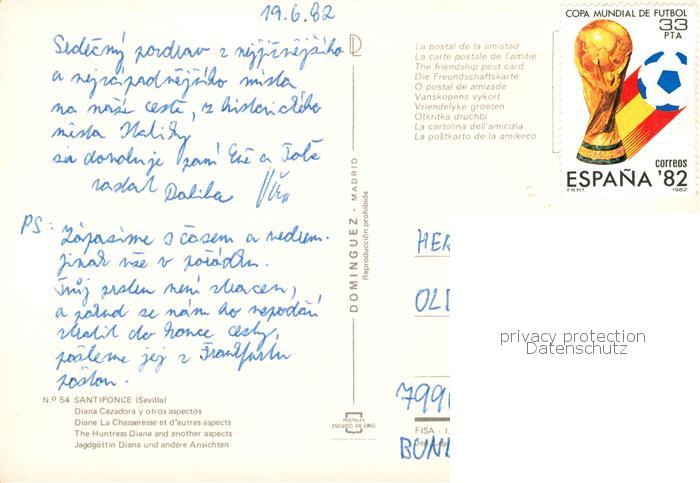 19.6.82
Srdečný pozdrav z nejjižnějšího
a nejzápadnějšího místa
na naší cestě, z historického
místa Italiky
za dovoluje paní Evě a Tobě
zaslat Dalibor
PS: Zápasíme s časem a vedrem.
Jinak vše v pořádku.
Tvůj prsten není ztracen,
a pokud se nám ho nepodaří
ztratit do konce cesty,
pošleme jej z Frankfurtu
poštou.
Nº 54 SANTIPONCE (Sevilla)
Diana Cazadora y otros aspectos
Diane La Chasseresse et d'autres aspects
The Huntress Diana and another aspects
Jagdgöttin Diana und andere Ansichten
DOMINGUEZ - MADRID
Reproducción prohibida
POSTALES
ESCUDO DE ORO
La postal de la amistad
La carte postale de l'amitié
The friendship post card
Die Freundschaftskarte
O postal de amizade
Vänskapens vykort
Vriendelyke groeten
Otkritka druchbi
La cartolina dell'amicizia
La poŝtkarto de la amikeco
COPA MUNDIAL DE FUTBOL
33
PTA
correos
ESPAÑA '82
F.N.M.T. 1982
HER
OLD
privacy protection
Datenschutz
799
FISA - I.
BON